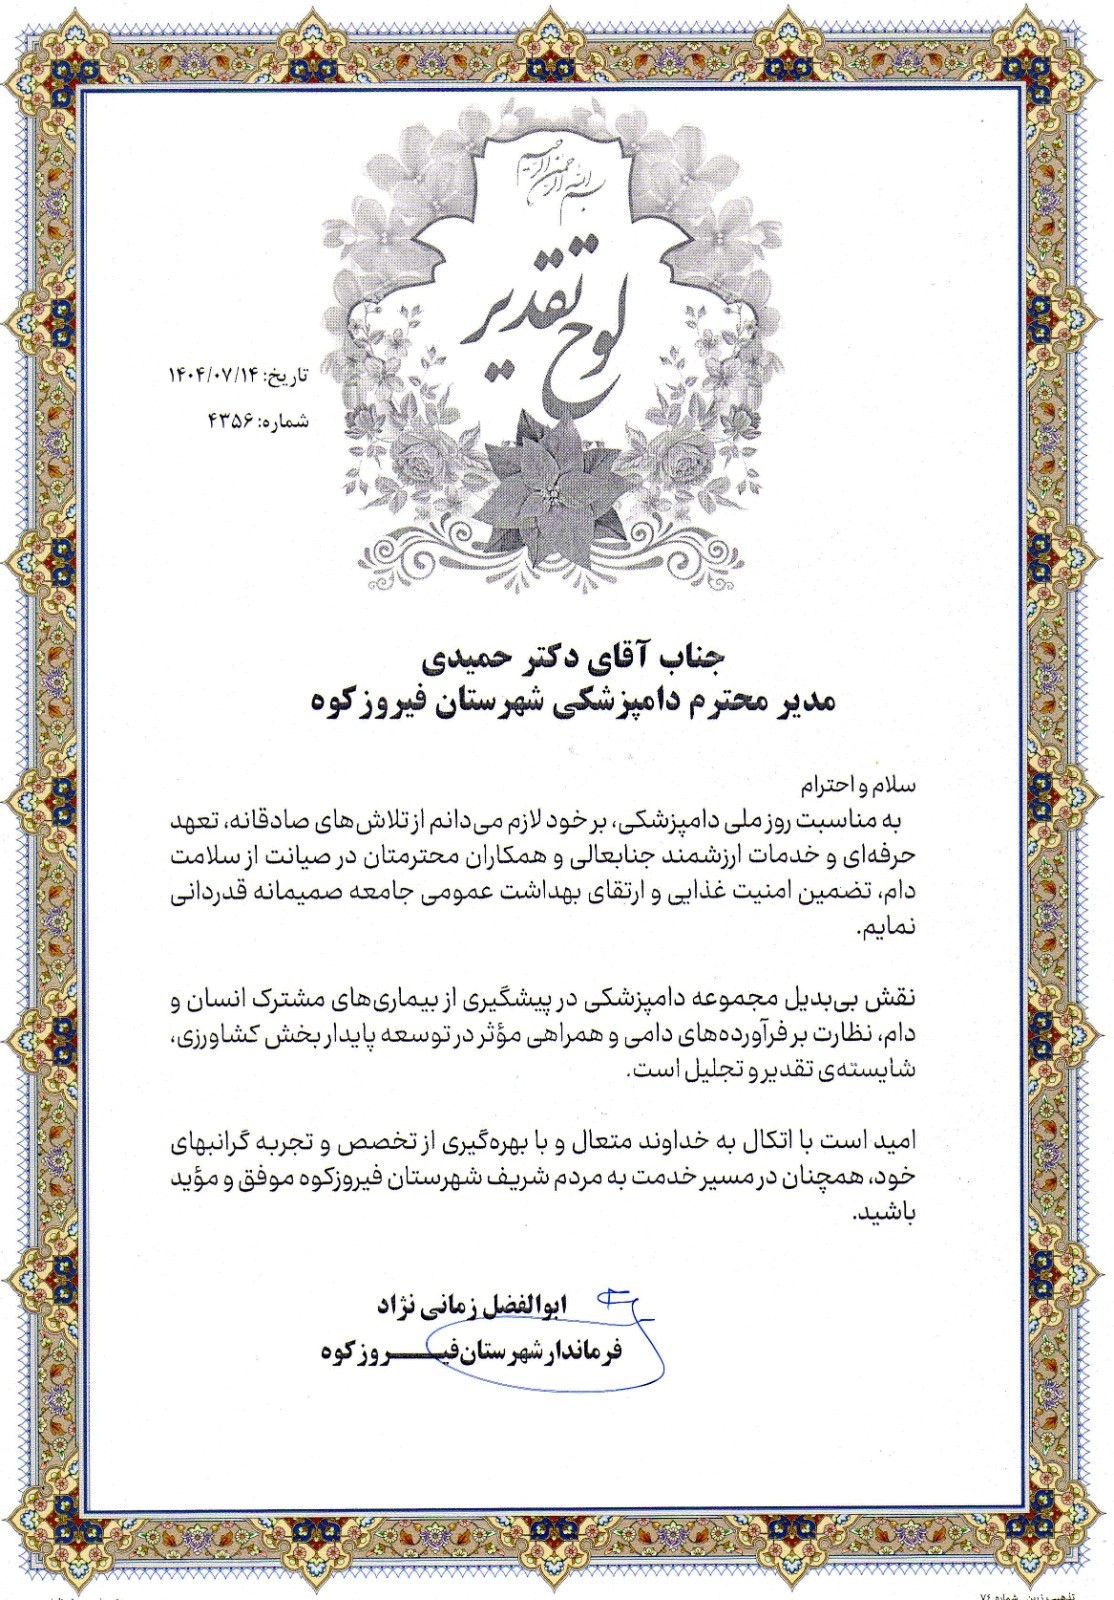 بسم الله الرحمن الرحیم
لوح تقدیر
تاریخ: ۱۴۰۴/۰۷/۱۴
شماره: ۴۳۵۶
جناب آقای دکتر حمیدی
مدیر محترم دامپزشکی شهرستان فیروزکوه
سلام و احترام
به مناسبت روز ملی دامپزشکی، بر خود لازم می‌دانم از تلاش‌های صادقانه، تعهد
حرفه‌ای و خدمات ارزشمند جنابعالی و همکاران محترمتان در صیانت از سلامت
دام، تضمین امنیت غذایی و ارتقای بهداشت عمومی جامعه صمیمانه قدردانی
نمایم.
نقش بی‌بدیل مجموعه دامپزشکی در پیشگیری از بیماری‌های مشترک انسان و
دام، نظارت بر فرآورده‌های دامی و همراهی مؤثر در توسعه پایدار بخش کشاورزی،
شایسته‌ی تقدیر و تجلیل است.
امید است با اتکال به خداوند متعال و با بهره‌گیری از تخصص و تجربه گرانبهای
خود، همچنان در مسیر خدمت به مردم شریف شهرستان فیروزکوه موفق و مؤید
باشید.
ابوالفضل زمانی نژاد
فرماندار شهرستان فیـــــروزکوه